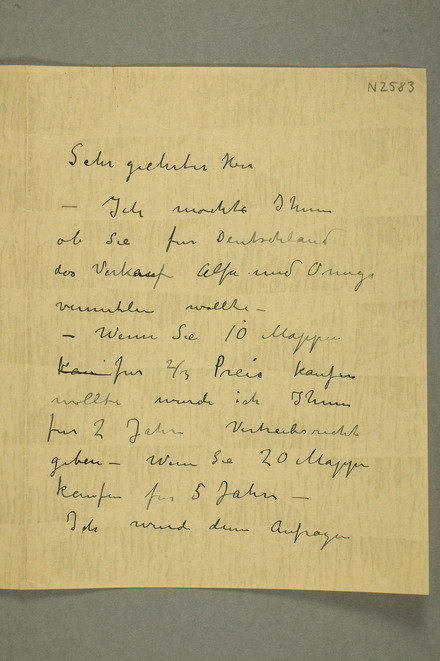 N2583
Sehr geehrter Herr
– Ich mochte Ihnen
ob Sie fur Deutschland
das Verkauf Alfa und
wollte –
– Wenn Sie 10 Mappen
fur 2/3 Preis kaufen
wollte wurde ich Ihnen
fur 2 Jahre Vertriebsrecht
geben – Wenn Sie 20 Mappen
kaufen fur 5 Jahre –
Ich wurde dann Anfragen